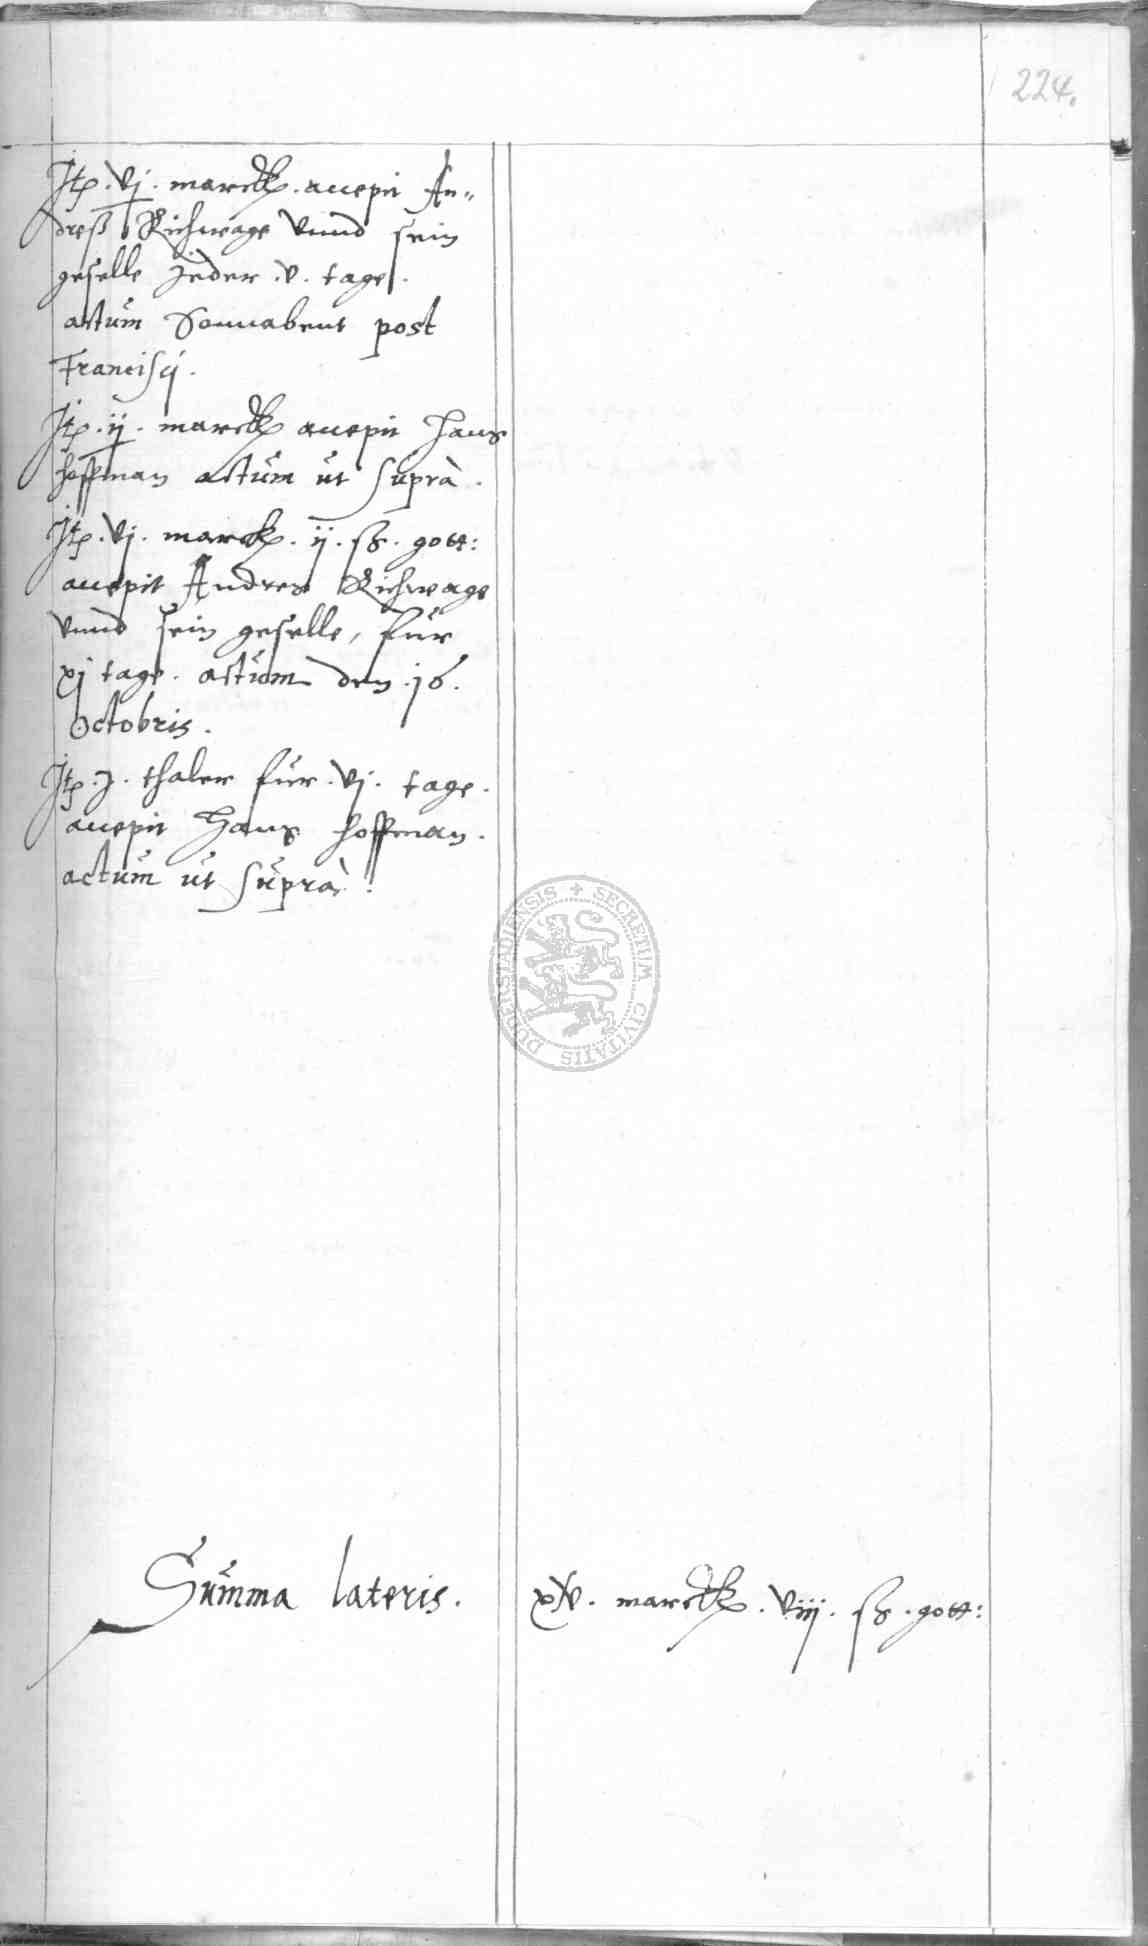 224.
Jtp. vj. marck. accepit An-
dreß Richwage vnnd sein
geselle Jeder .v. tage.
actum Sonnabent post
Franciscj.
Jtp. ij. marck accepit Hans
hoffman actum ut suprà.
Jtp. vj. marck. ij. ß. gott:
accepit Andres Richwage
vnnd sein geselle, für
xj tage. actum den .16.
Octobris.
Jtp. J. thaler für .vj. tage.
accepit Hans hoffman.
actum ut suprà.
SECRETUM CIVITATIS DUDERSTADIENSIS
Summa lateris. marck. viij. ß. gott: